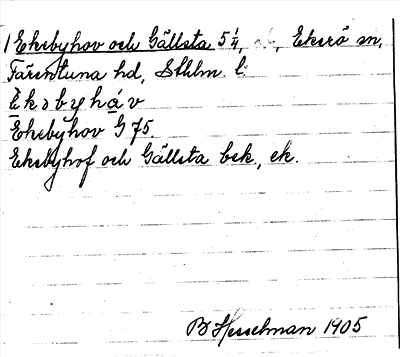 1 Ekebyhov och Gällsta 5 1/4, Ekerö sn,
Färentuna hd, Sthlm. l:
Èkəbyháv
Ekebyhov G 75.
Ekebyhof och Gällsta bek., ek.
B Hesselman 1905